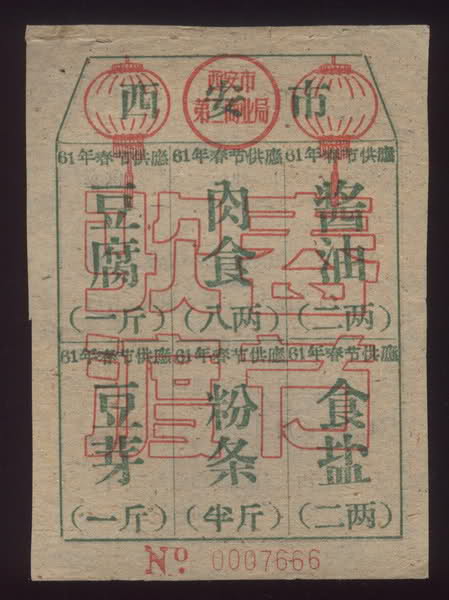 西安市
西安市
61年春节供應 61年春节供應 61年春节供應
豆腐 肉食 酱油
(一斤) (八两) (二两)
61年春节供應 61年春节供應 61年春节供應
豆芽 粉条 食盐
(一斤) (半斤) (二两)
Nº 0007666